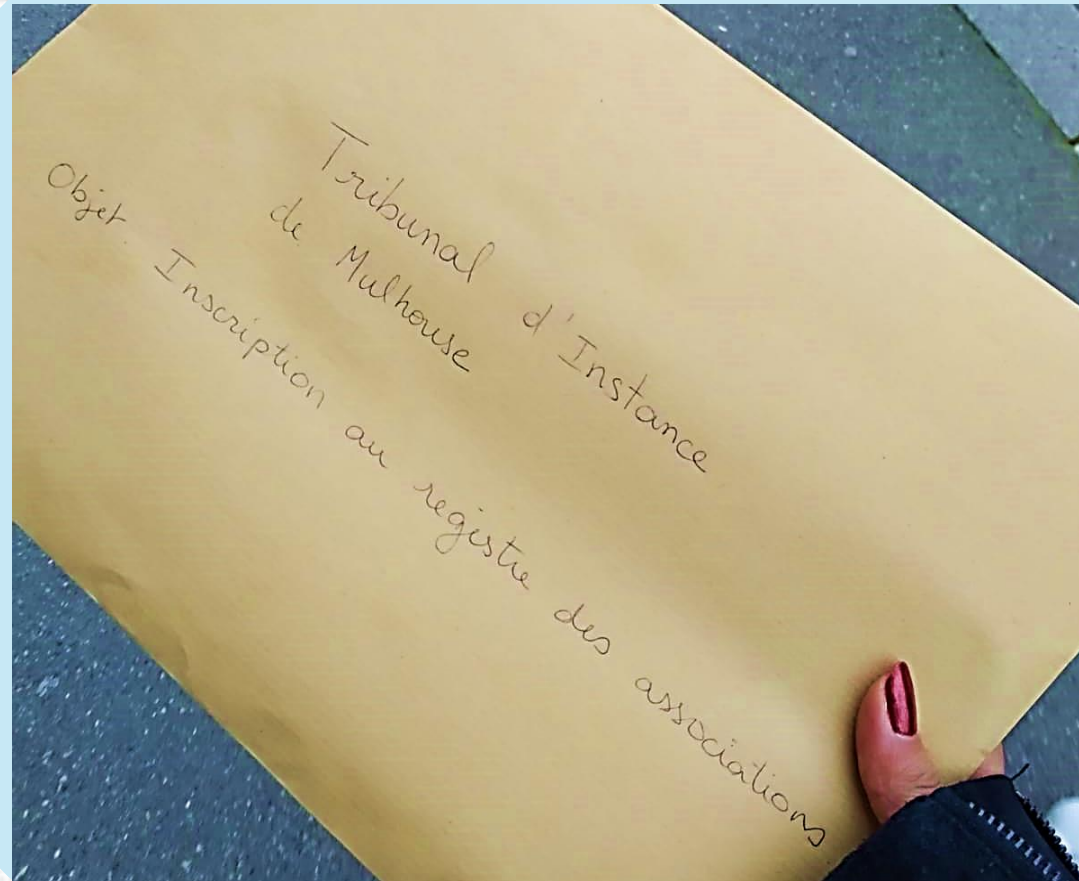 Tribunal d'Instance
de Mulhouse
Objet. Inscription au registre des associations